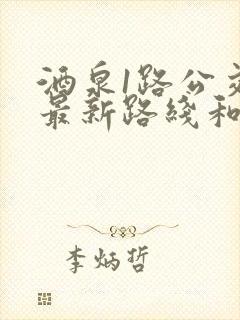 酒泉1路公交
最新路线和
李炳哲